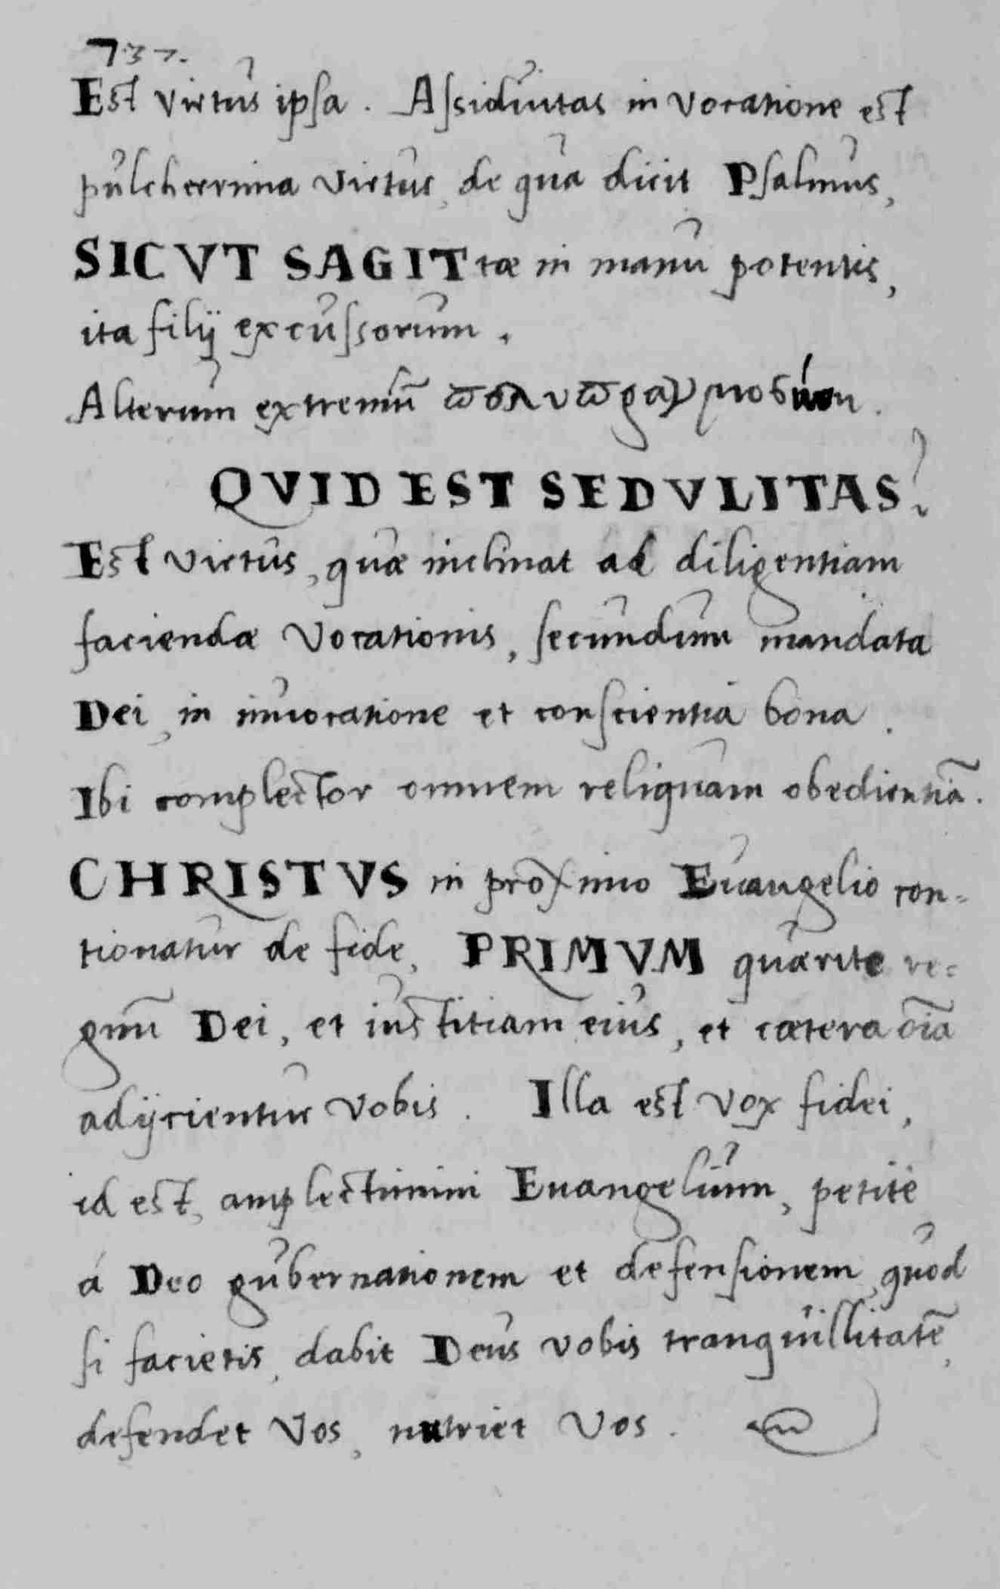 737.
Est virtus ipsa. Assiduitas in vocatione est
pulcherrima virtus, de qua dicit Psalmus,
SICVT SAGITtæ in manu potentis,
ita filij excussorum.
Alterum extremū πολυπραγμοσύνη.
QVID EST SEDVLITAS?
Est virtus, quæ inclinat ad diligentiam
faciendæ vocationis, secundum mandata
Dei, in inuocatione et conscientia bona.
Ibi complector omnem reliquam obedientiā.
CHRISTVS in proximo Euangelio con-
tionatur de fide, PRIMVM quærite re-
gnū Dei, et iustitiam eius, et cætera oīa
adijcientur vobis. Illa est vox fidei,
id est, amplectimini Euangelium, petite
á Deo gubernationem et defensionem, quod
si facietis, dabit Deus vobis tranquillitatē,
defendet vos, nutriet vos.